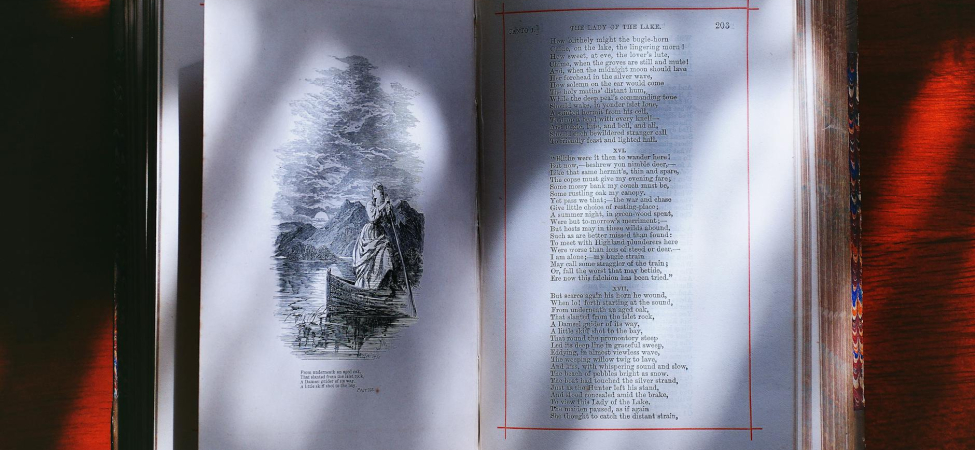 From underneath an aged oak,
That slanted from the islet rock,
A Damsel guider of its way,
A little skiff shot to the bay,
THE LADY OF THE LAKE. 203
How blithely might the bugle-horn
Chide, on the lake, the lingering morn!
How sweet, at eve, the lover's lute,
Chime, when the groves are still and mute!
And, when the midnight moon should lave
Her forehead in the silver wave,
How solemn on the ear would come
The holy matins' distant hum,
While the deep peal's commanding tone
Should wake, in yonder islet lone,
A sainted hermit from his cell,
To drop a bead with every knell!—
And bugle, lute, and bell, and all,
Should each bewildered stranger call
To friendly feast and lighted hall.
XVI.
"Blithe were it then to wander here!
But now,—beshrew yon nimble deer,—
Like that same hermit's, thin and spare,
The copse must give my evening fare;
Some mossy bank my couch must be,
Some rustling oak my canopy.
Yet pass we that;—the war and chase
Give little choice of resting-place;
A summer night, in greenwood spent,
Were but to-morrow's merriment;—
But hosts may in these wilds abound,
Such as are better missed than found:
To meet with Highland plunderers here
Were worse than loss of steed or deer.—
I am alone;—my bugle strain
May call some straggler of the train;
Or, fall the worst that may betide,
Ere now this falchion has been tried."
XVII.
But scarce again his horn he wound,
When lo! forth starting at the sound,
From underneath an aged oak,
That slanted from the islet rock,
A Damsel guider of its way,
A little skiff shot to the bay,
That round the promontory steep
Led its deep line in graceful sweep,
Eddying, in almost viewless wave,
The weeping willow twig to lave,
And kiss, with whispering sound and slow,
The beach of pebbles bright as snow.
The boat had touched the silver strand,
Just as the Hunter left his stand,
And stood concealed amid the brake,
To view this Lady of the Lake.
The maiden paused, as if again
She thought to catch the distant strain,